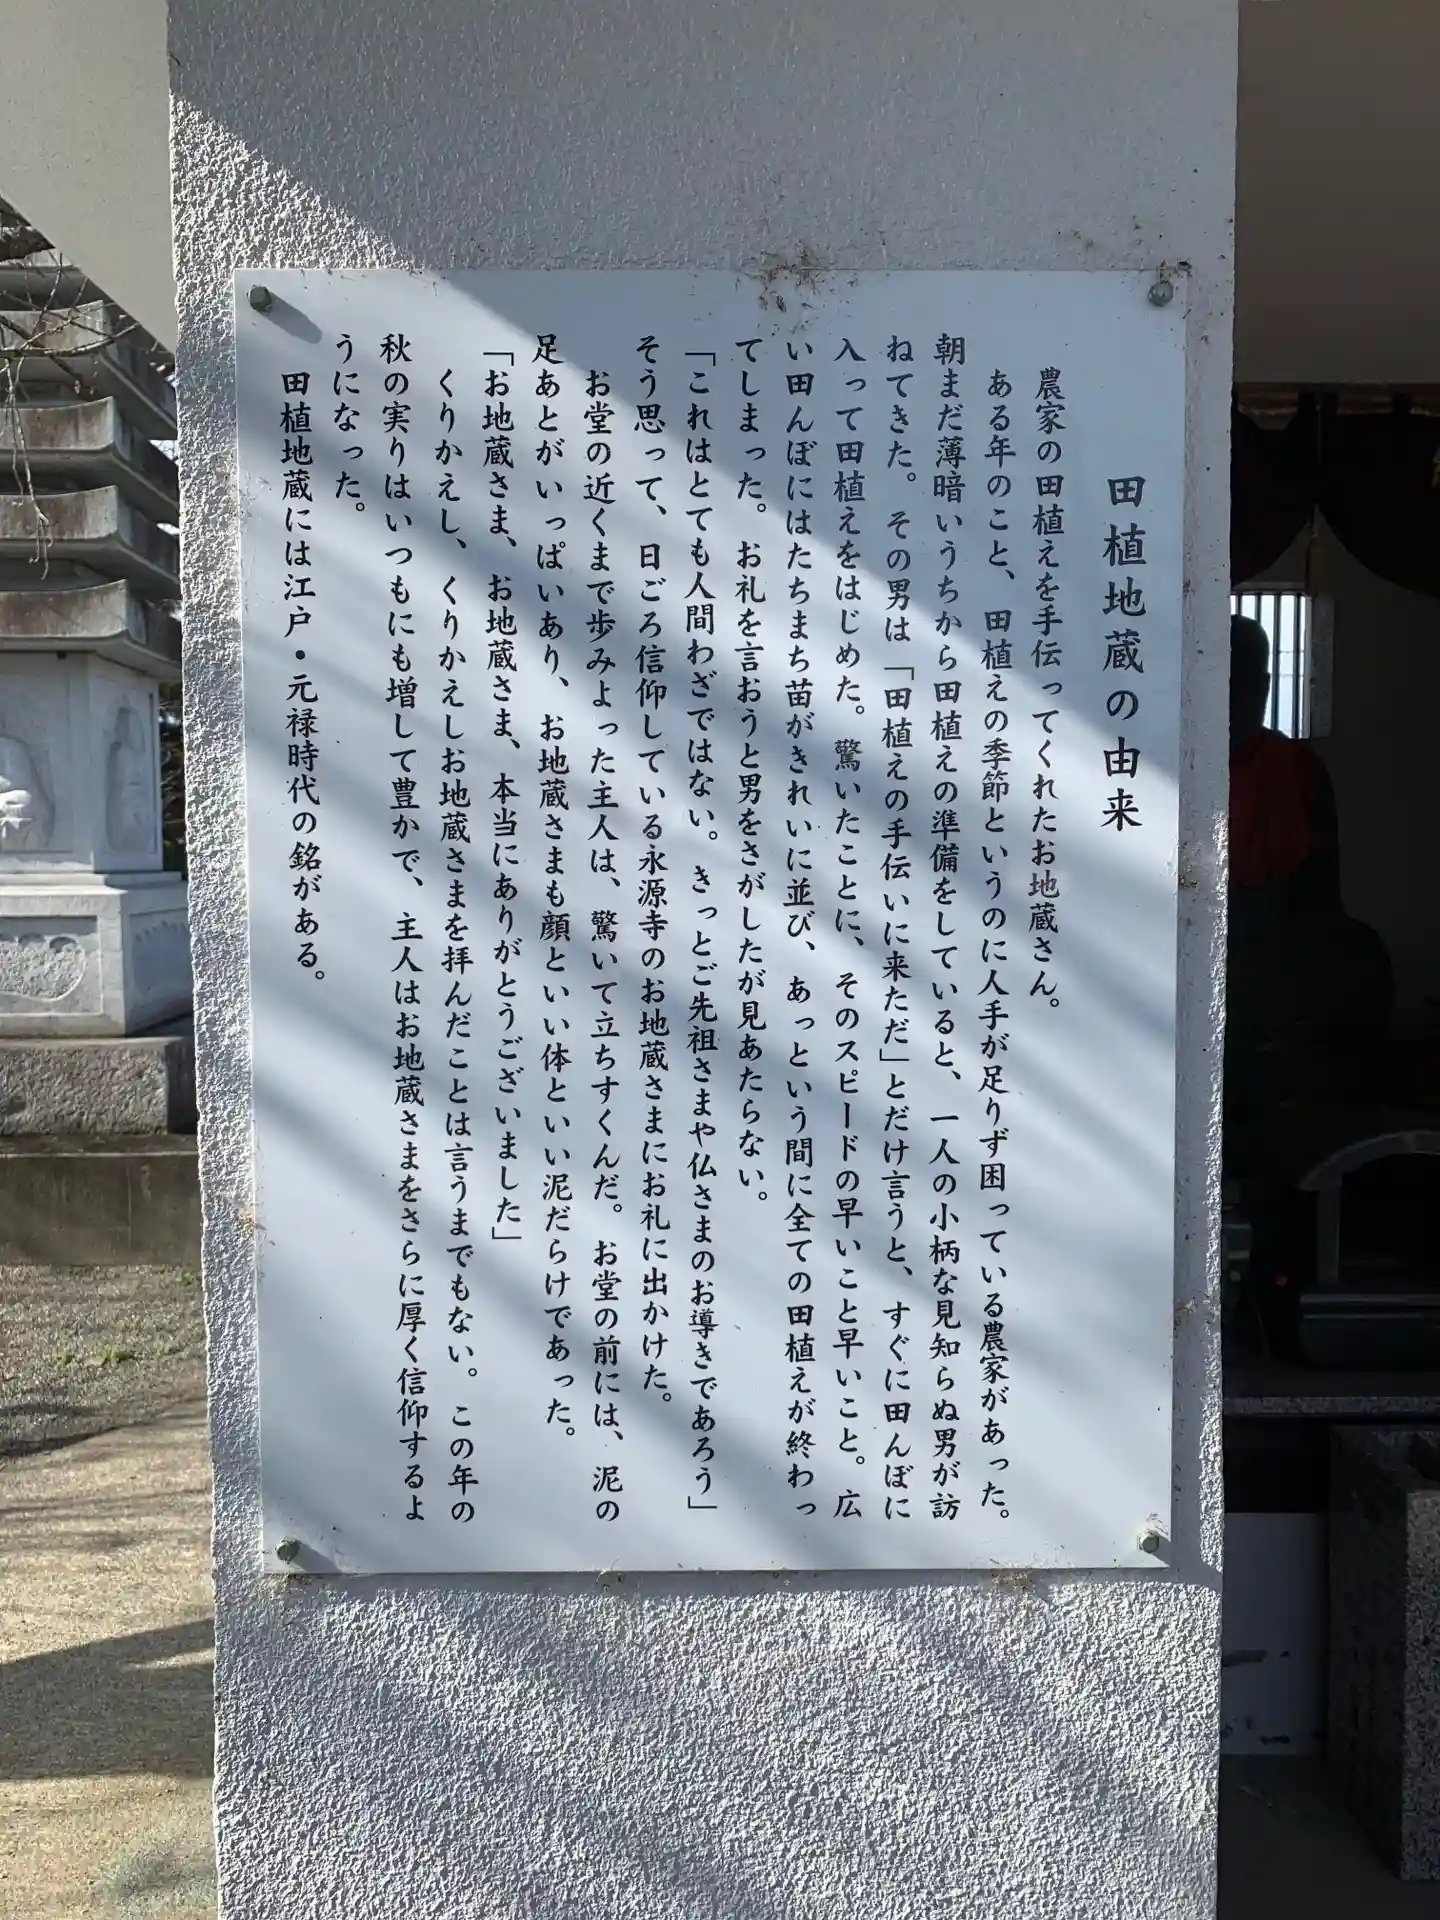 田植地蔵の由来
農家の田植えを手伝ってくれたお地蔵さん。
ある年のこと、田植えの季節というのに人手が足りず困っている農家があった。
朝まだ薄暗いうちから田植えの準備をしていると、一人の小柄な見知らぬ男が訪
ねてきた。その男は「田植えの手伝いに来ただ」とだけ言うと、すぐに田んぼに
入って田植えをはじめた。驚いたことに、そのスピードの早いこと早いこと。広
い田んぼにはたちまち苗がきれいに並び、あっという間に全ての田植えが終わっ
てしまった。お礼を言おうと男をさがしたが見あたらない。
「これはとても人間わざではない。きっとご先祖さまや仏さまのお導きであろう」
そう思って、日ごろ信仰している永源寺のお地蔵さまにお礼に出かけた。
お堂の近くまで歩みよった主人は、驚いて立ちすくんだ。お堂の前には、泥の
足あとがいっぱいあり、お地蔵さまも顔といい体といい泥だらけであった。
「お地蔵さま、お地蔵さま、本当にありがとうございました」
くりかえし、くりかえしお地蔵さまを拝んだことは言うまでもない。この年の
秋の実りはいつもにも増して豊かで、主人はお地蔵さまをさらに厚く信仰するよ
うになった。
田植地蔵には江戸・元禄時代の銘がある。